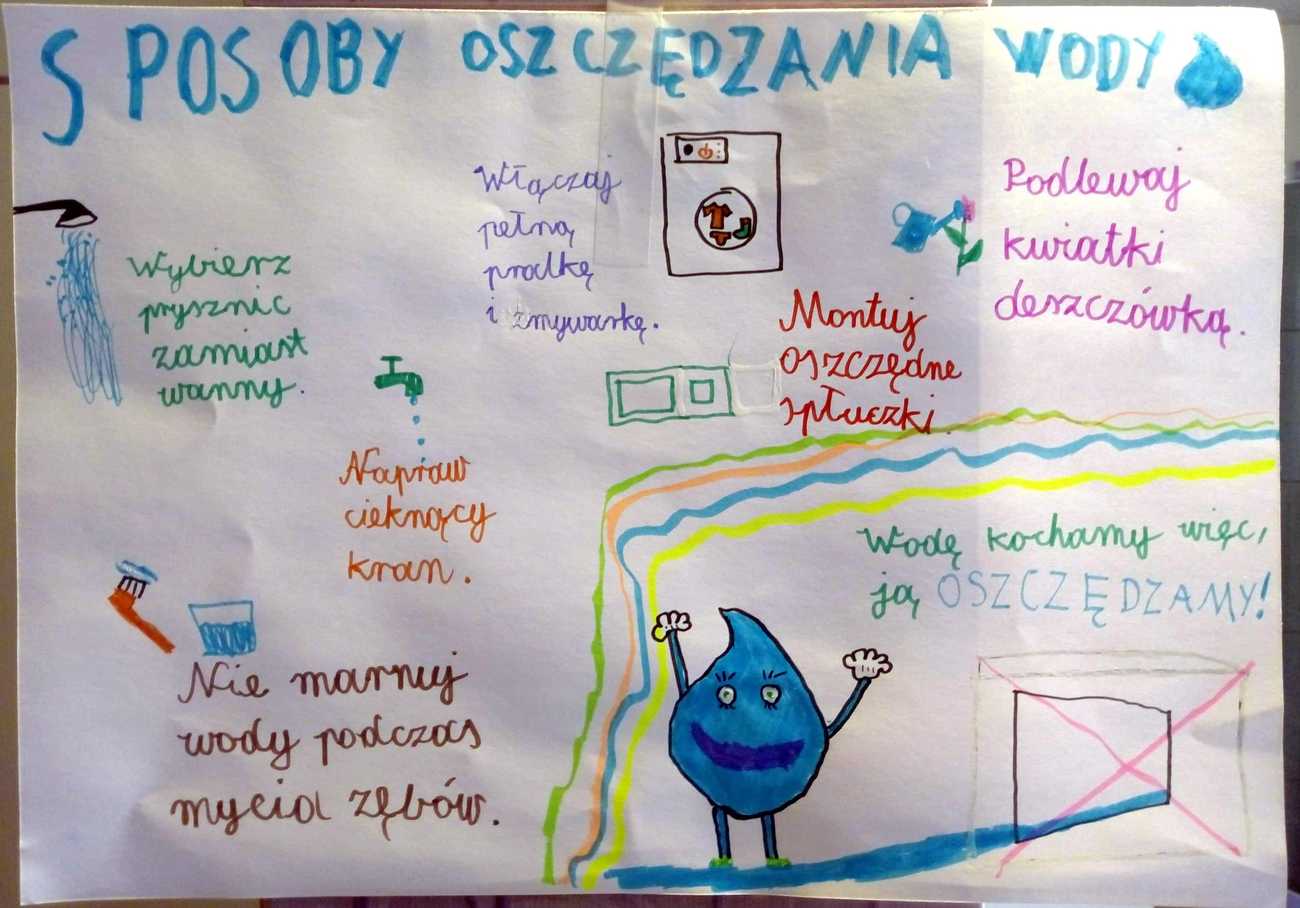 SPOSOBY OSZCZĘDZANIA WODY
Wybierz
prysznic
zamiast
wanny.
Włączaj
pełną
pralkę
i zmywarkę.
Podlewaj
kwiatki
deszczówką.
Montuj
oszczędne
spłuczki.
Napraw
cieknący
kran.
Nie marnuj
wody podczas
mycia zębów.
Wodę kochamy więc,
ją OSZCZĘDZAMY!